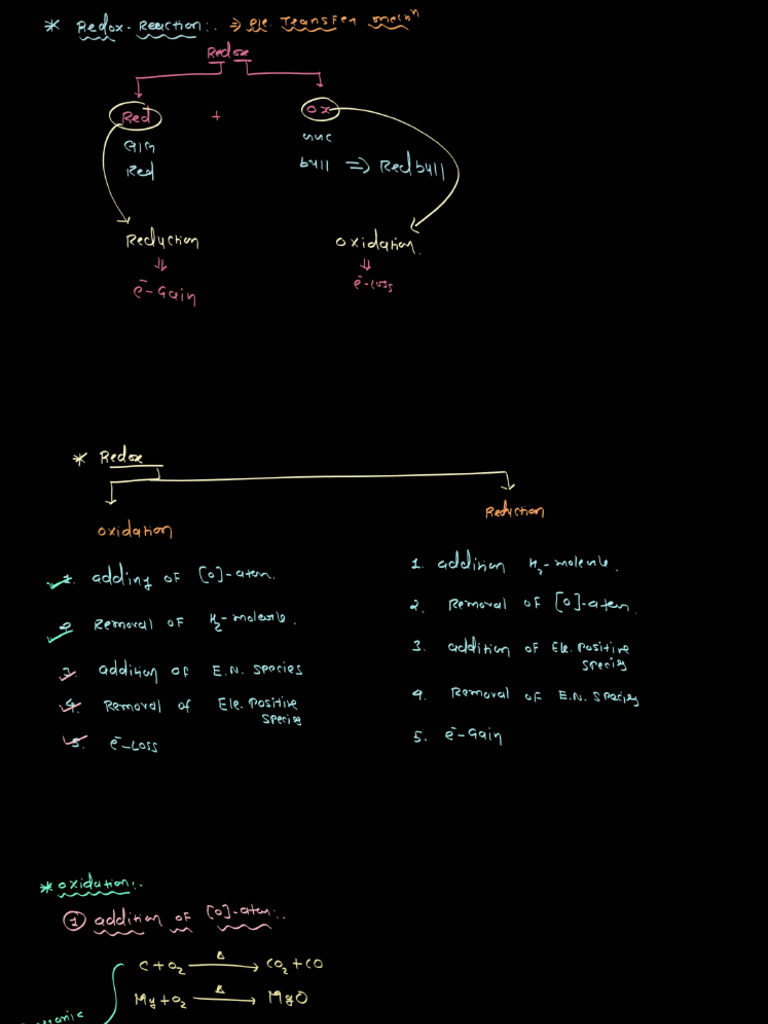 * Redox-Reaction:. ⇒ ele. Transfer mechⁿ
Redox
Red + Ox
लाल
Red bull ⇒ Redbull
Reduction Oxidation.
⇓ ⇓
e⁻-Gain e⁻-Loss
* Redox
Oxidation Reduction
1. adding of [O]-atom.
2. Removal of H₂-molecule.
3. addition of E.N. species
4. Removal of Ele.Positive
species
5. e⁻-Loss
1. addition H₂-molecule.
2. Removal of [O]-atom.
3. addition of Ele.Positive
species
4. Removal of E.N. species
5. e⁻-Gain
* Oxidation:.
① addition of [O]-atom:.
C+O₂ —Δ→ CO₂+CO
Mg+O₂ —Δ→ MgO